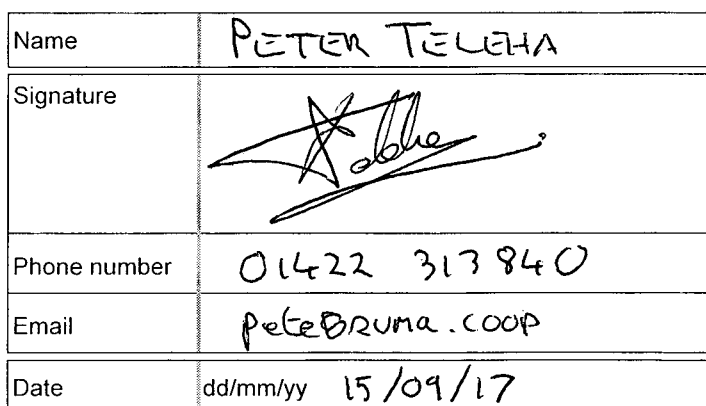 Name PETER TELEHA
Signature
Phone number 01422 313840
Email pete@suma.coop
Date dd/mm/yy 15/09/17